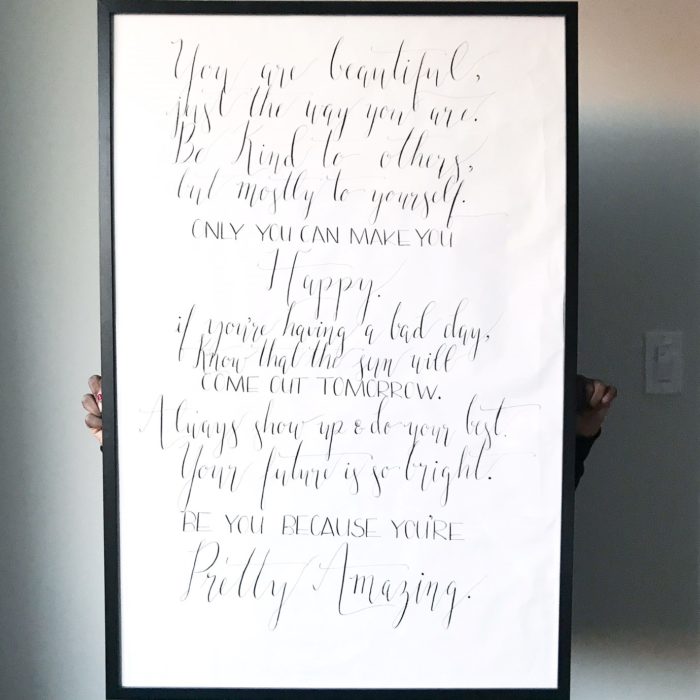 You are beautiful,
just the way you are.
Be Kind to others,
but mostly to yourself.
ONLY YOU CAN MAKE YOU
Happy.
if you're having a bad day,
Know that the sun will
COME OUT TOMORROW.
Always show up & do your best.
Your future is so bright.
BE YOU BECAUSE YOU'RE
Pretty Amazing.